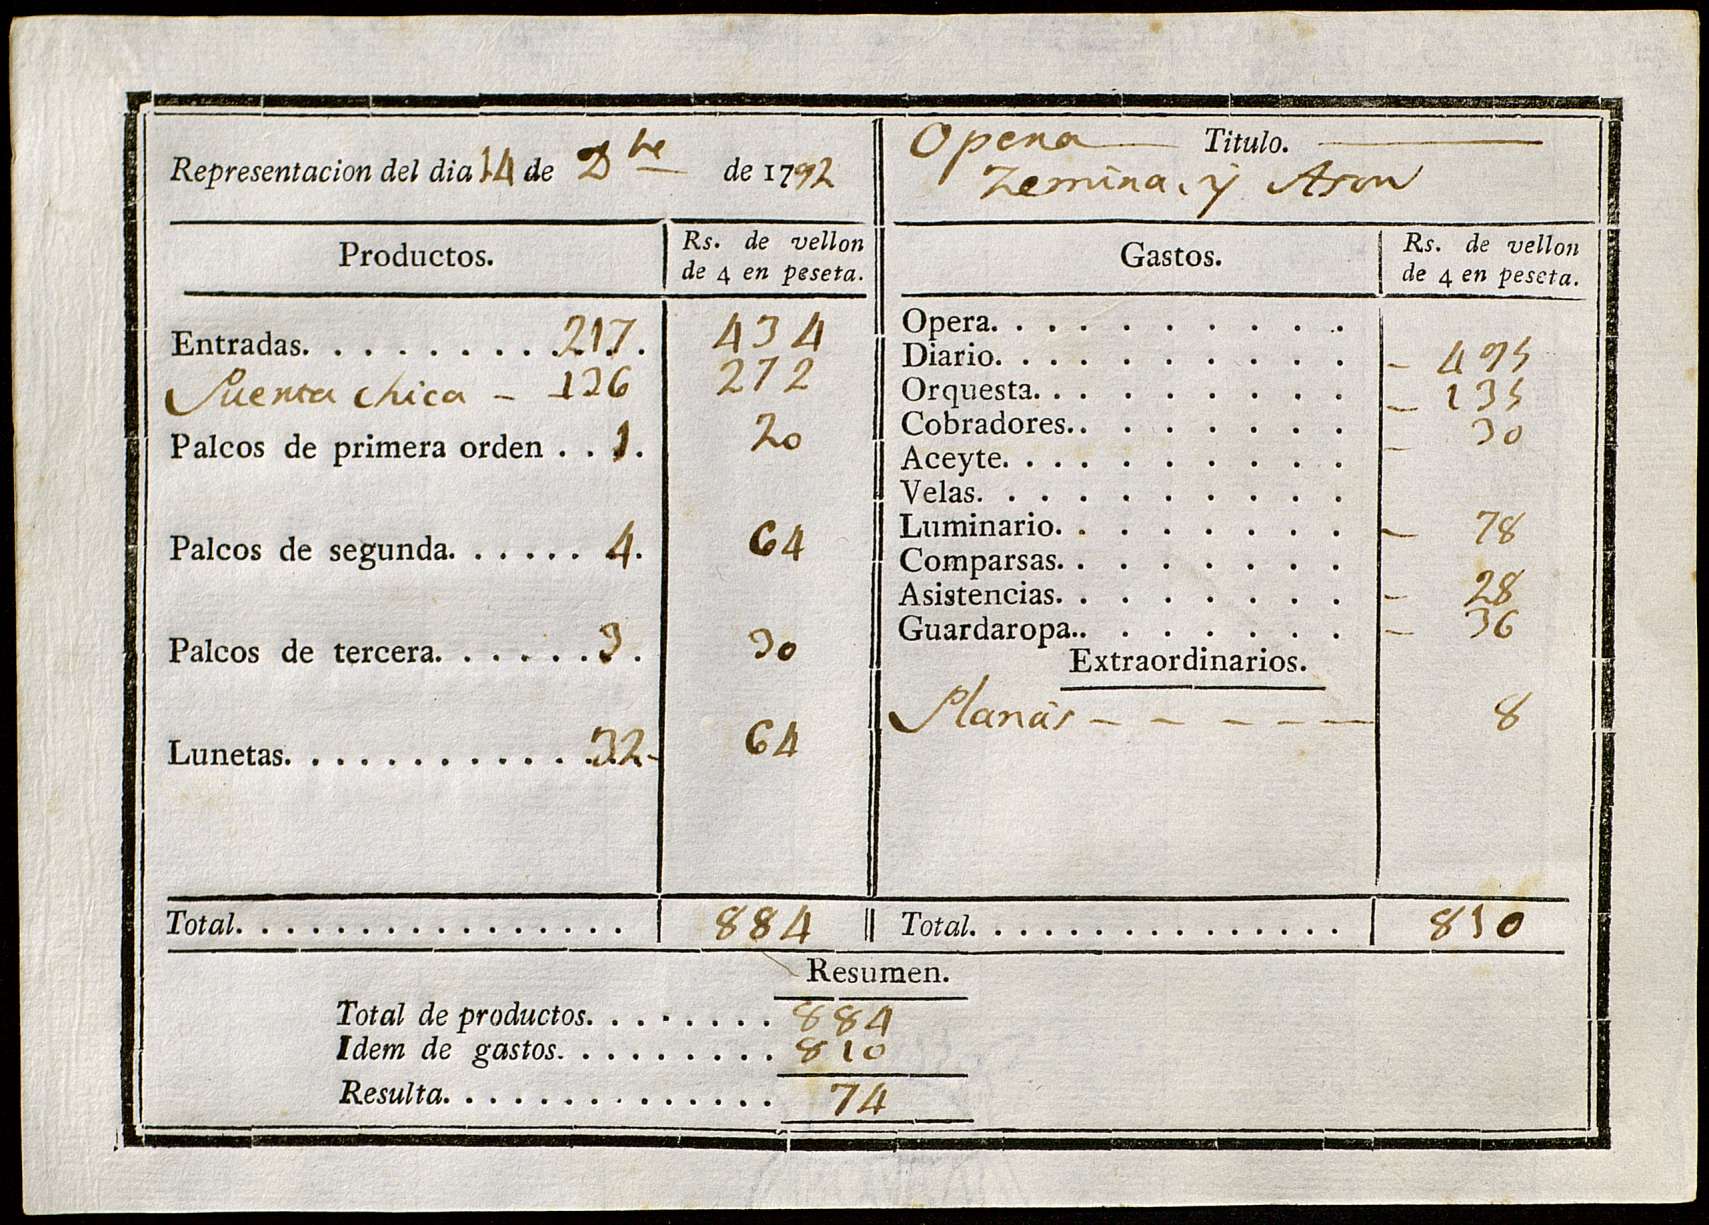 Representacion del dia 14 de Dbre de 1792
Opera Titulo.
Zemina, y Asou
Productos.
Rs. de vellon
de 4 en peseta.
Entradas. . . . . . . . . . . 217. 434
Puerta chica - 136 272
Palcos de primera orden . . 1. 20
Palcos de segunda. . . . . . 4. 64
Palcos de tercera. . . . . . . 3. 30
Lunetas. . . . . . . . . . . . . 32- 64
Total. . . . . . . . . . . . . . . . 884
Gastos.
Rs. de vellon
de 4 en peseta.
Opera. . . . . . . . . .
Diario. . . . . . . . . . - 495
Orquesta. . . . . . . . . - 135
Cobradores.. . . . . . . - 30
Aceyte. . . . . . . . . . -
Velas. . . . . . . . . .
Luminario. . . . . . . . - 78
Comparsas. . . . . . . .
Asistencias. . . . . . . . - 28
Guardaropa.. . . . . . . - 36
Extraordinarios.
Planas - - - - - 8
Total. . . . . . . . . . . . . . . . 810
Resumen.
Total de productos. . . . . . . . 884
Idem de gastos. . . . . . . . . . 810
Resulta. . . . . . . . . . . . . . . 74